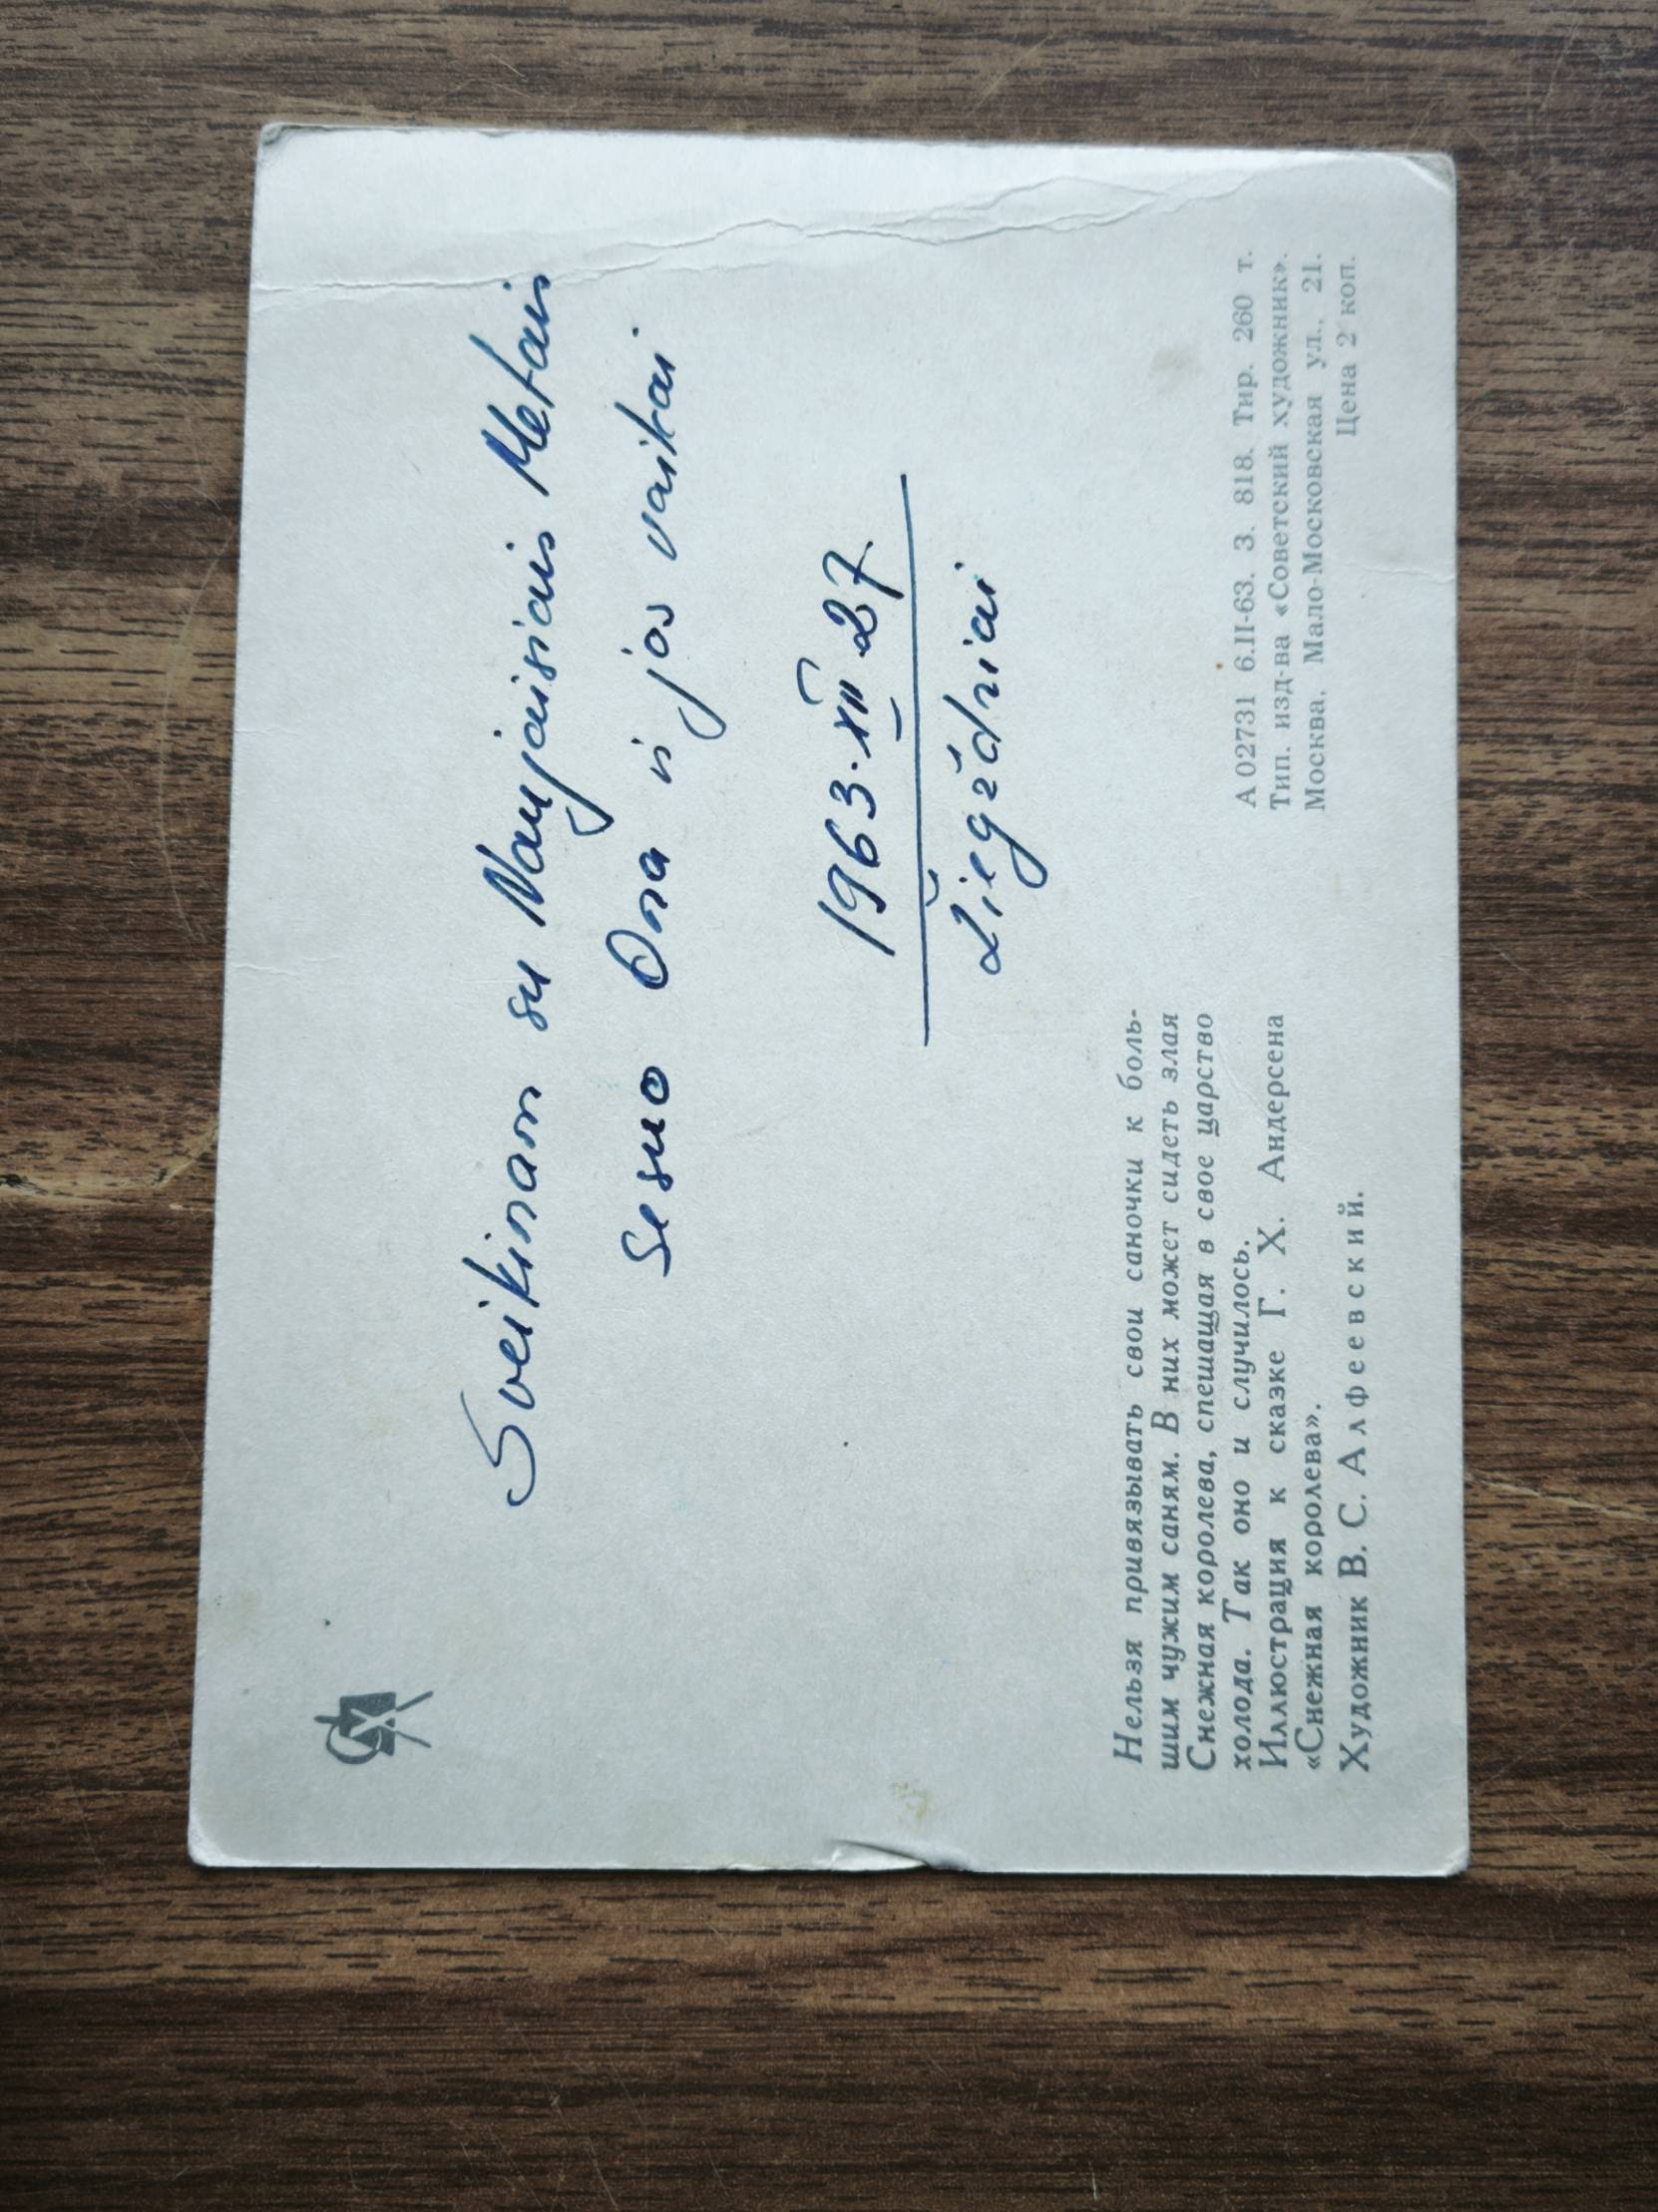 Sveikinam su Naujaisiais Metais
Sesuo Ona ir jos vaikai
1963.XII 27.
Žiegždriai
Нельзя привязывать свои саночки к боль-
шим чужим саням. В них может сидеть злая
Снежная королева, спешащая в свое царство
холода. Так оно и случилось.
Иллюстрация к сказке Г. Х. Андерсена
«Снежная королева».
Художник В. С. Алфеевский.
А 02731 6.II-63. З. 818. Тир. 260 т.
Тип. изд-ва «Советский художник».
Москва. Мало-Московская ул., 21.
Цена 2 коп.